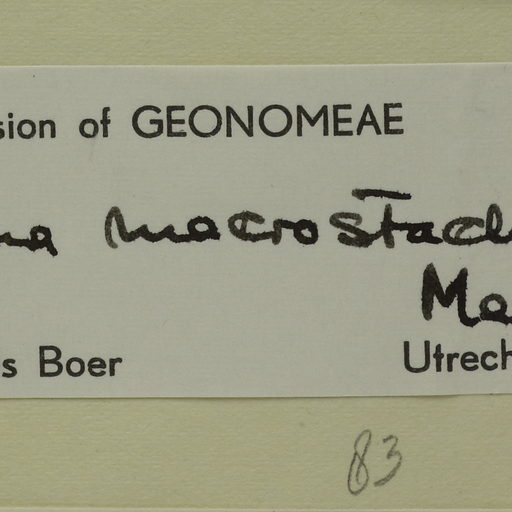 sion of GEONOMEAE
ma macrostach
Ma
s Boer Utrech
83